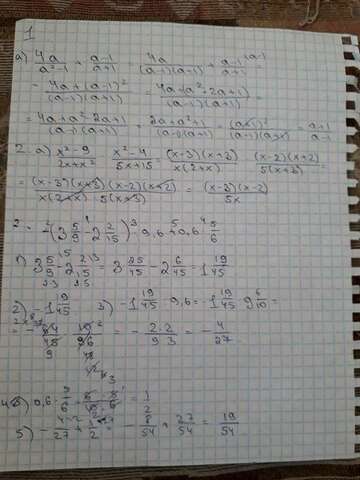 1
a) 4a/(a²-1) + (a-1)/(a+1) = 4a/((a-1)(a+1)) + (a-1)/(a+1) =
= (4a+(a-1)²)/((a-1)(a+1)) = (4a+(a²-2a+1))/((a-1)(a+1)) =
= (4a+a²-2a+1)/((a-1)(a+1)) = (2a+a²+1)/((a-1)(a+1)) = (a+1)²/((a-1)(a+1)) = (a+1)/(a-1)
2. a) (x²-9)/(2x+x²) · (x²-4)/(5x+15) = (x-3)(x+3)/(x(2+x)) · (x-2)(x+2)/(5(x+3)) =
= (x-3)(x+3)(x-2)(x+2)/(x(2+x) 5(x+3)) = (x-3)(x-2)/(5x)
-(3 5/9 - 2 2/15) : 9,6 + 0,6 · 5/6
1) 3 5/9 - 2 2/15 = 3 25/45 - 2 6/45 = 1 19/45
2) -1 19/45 3) -1 19/45 : 9,6 = -1 19/45 : 9 6/10 =
= - 2·2/(9·3) = - 4/27
5) - 4/27 + 1/2 = - 8/54 + 27/54 = 19/54